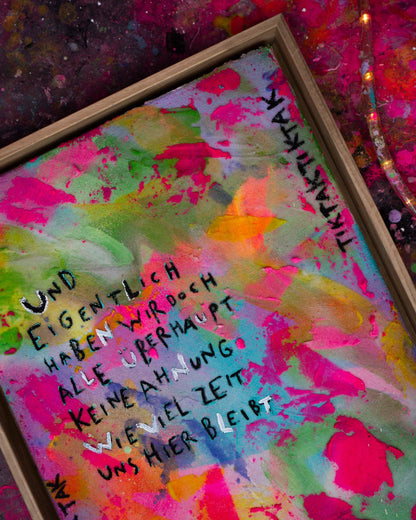 TIKTAKTIKTAK
UND
EIGENTLICH
HABEN WIR DOCH
ALLE ÜBERHAUPT
KEINE AHNUNG
WIEVIEL ZEIT
UNS HIER BLEIBT
TAK